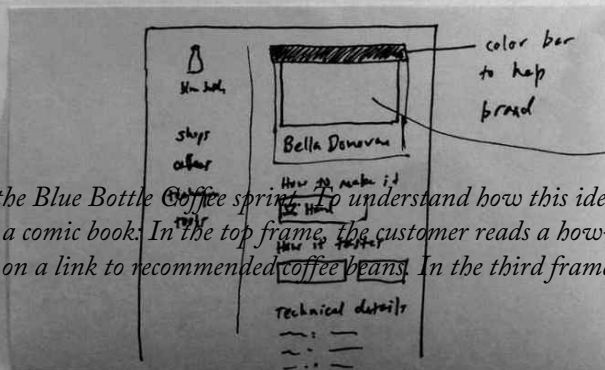 color bar
to help
brand
shops
coffee
tools
Bella Donovan
How to make it
How it tastes
Technical details
the Blue Bottle Coffee sprint. To understand how this ide
a comic book: In the top frame, the customer reads a how-
on a link to recommended coffee beans. In the third frame